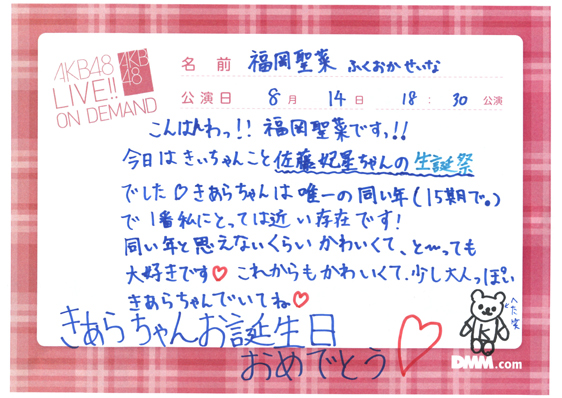 AKB48
LIVE!!
ON DEMAND
AKB
48
名前 福岡聖菜 ふくおかせいな
公演日 8月 14日 18:30公演
こんばんわっ!! 福岡聖菜ですっ!!
今日はきぃちゃんこと佐藤妃星ちゃんの生誕祭
でした♡きあらちゃんは唯一の同い年(15期で。)
で1番私にとっては近い存在です!
同い年と思えないくらいかわいくて、と〜っても
大好きです♡これからもかわいくて、少し大人っぽい
きあらちゃんでいてね♡
きあらちゃんお誕生日
おめでとう
へた笑
K
DMM.com